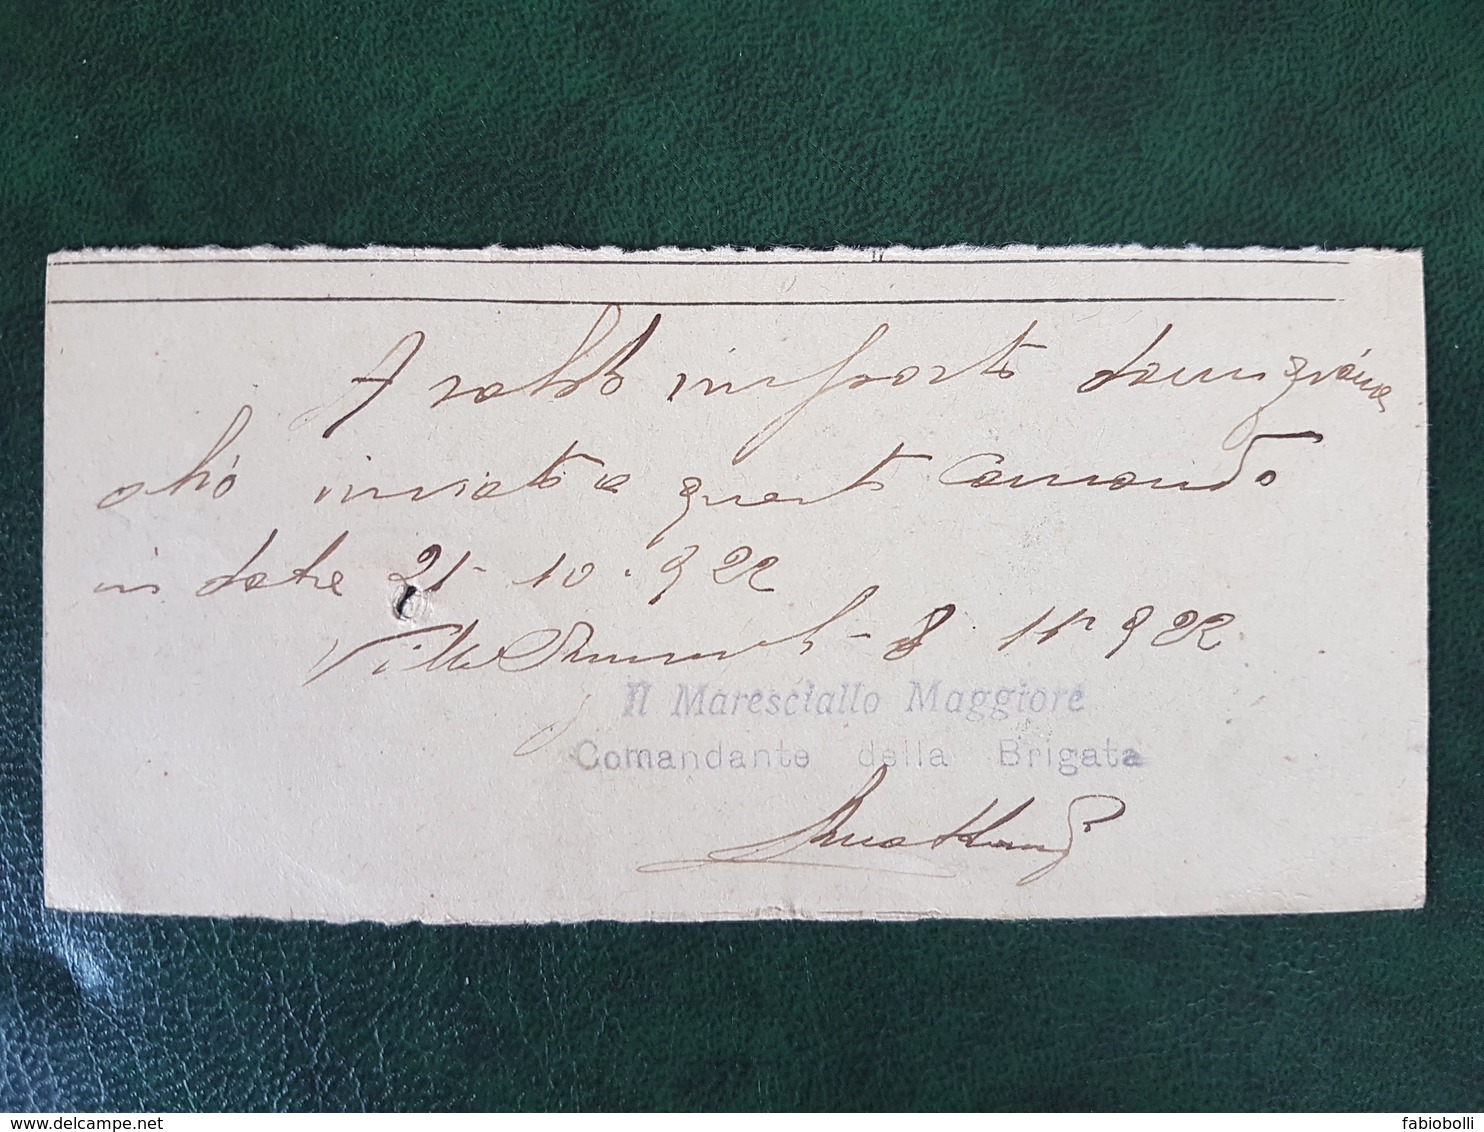 A saldo importo damigiana
olio inviata a questo Comando
in data 21-10-922
Villa 8 11 922
Il Maresciallo Maggiore
Comandante della Brigata
delcampe.net
fabiobolli